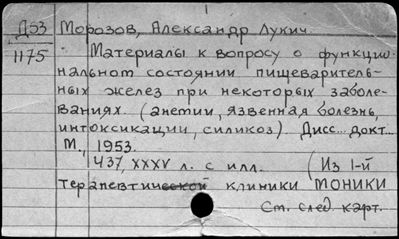 Д53 Морозов, Александр Лукич.
1175 Материалы к вопросу о функцио-
нальном состоянии пищеваритель-
ных желез при некоторых заболе-
ваниях. (анемии, язвенная болезнь,
интоксикации, силикоз). Дисс... докт...
М., 1953.
437, XXXV л. с илл. (Из 1-й
терапевтической клиники МОНИКИ
См. след. карт.